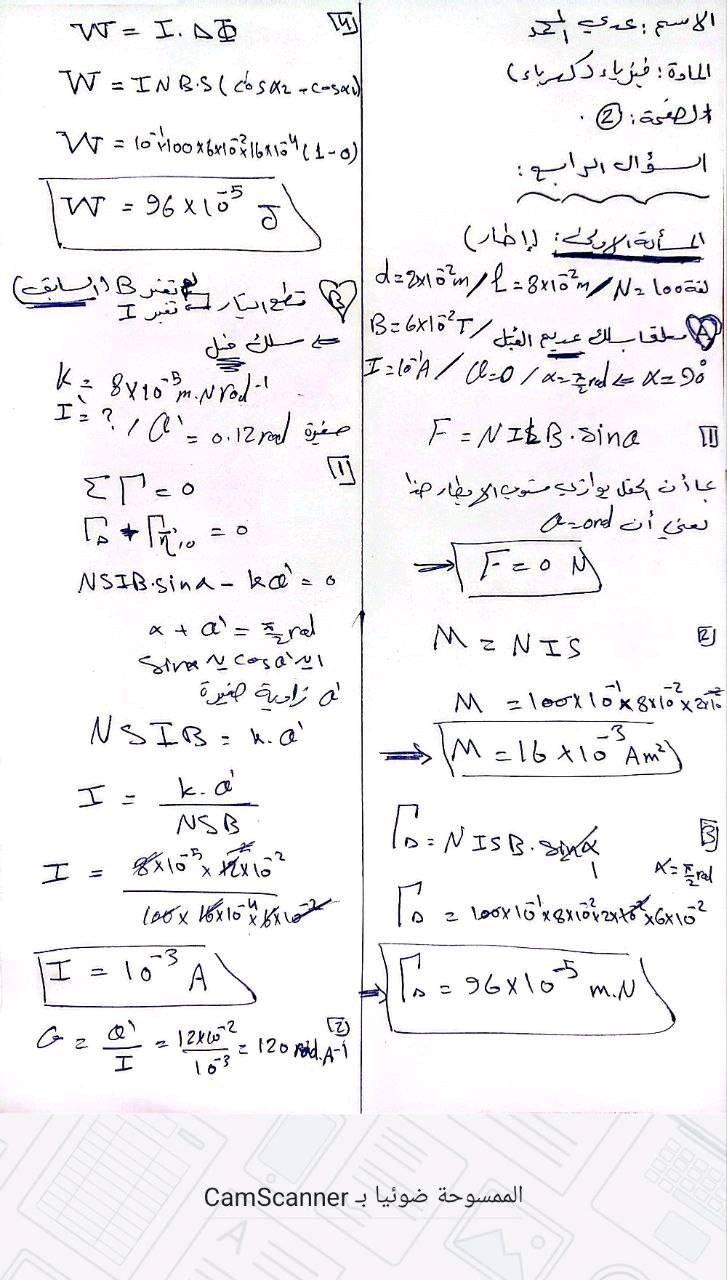 الاسم: عدي
المادة: فيزياء (كهرباء)
الصفحة: 2
السؤال الرابع:
المسألة الأولى: (إطار)
d=2x10⁻²m / L=8x10⁻²m / N=100 لفة
A معلقا بسلك عديم الفتل / B=6x10⁻²T
I=10⁻¹A / θ=0 / α=π/2 rad ⇐ α=90°
1 F = NILB.sinθ
بما أن الحقل يوازي مستوي الإطار هذا
يعني أن θ=0rad
→ F = 0 N
2 M = NIS
M = 100x10⁻¹x8x10⁻²x2x10⁻²
⇒ M = 16x10⁻³ Am²
3 ΓΔ = NISB.sinα
1
α=π/2 rad
ΓΔ = 100x10⁻¹x8x10⁻²x2x10⁻²x6x10⁻²
⇒ ΓΔ = 96x10⁻⁵ m.N
4 W = I.ΔΦ
W = INB.S(cosα2 - cosα1)
W = 10⁻¹x100x6x10⁻²x16x10⁻⁴(1-0)
W = 96x10⁻⁵ J
B قطع التيار لم تتغير B (السابق)
تغير I
⇐ سلك فتل
K = 8x10⁻⁵ m.N rad⁻¹
I' = ? / θ' = 0.12 rad صغيرة
1
ΣΓ = 0
ΓΔ + Γη'/0 = 0
NSIB.sinα - kθ' = 0
α + θ' = π/2 rad
sinα ≃ cosθ' ≃ 1
θ' زاوية صغيرة
NSIB = k.θ'
I = k.θ' / NSB
I = 8x10⁻⁵ x 12x10⁻² / 100x16x10⁻⁴x6x10⁻²
I = 10⁻³ A
2
G = θ'/I = 12x10⁻²/10⁻³ = 120 rad.A⁻¹
الممسوحة ضوئيا بـ CamScanner